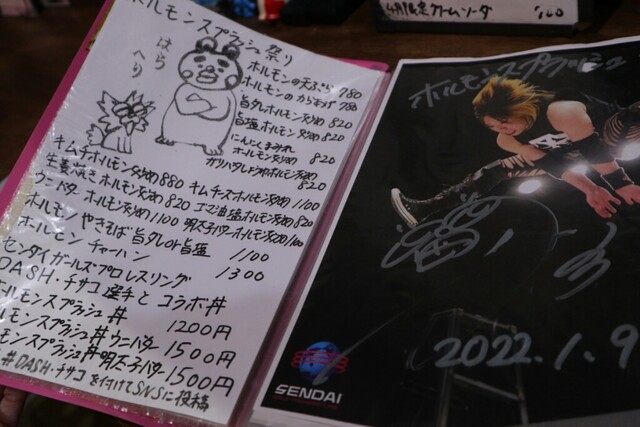 4月限定クリームソーダ
700
ホルモンスプラッシュ祭り
はら
へり
ホルモンの天ぷら 780
ホルモンのからあげ 780
旨タレホルモン炒め 820
旨塩ホルモン炒め 820
にんにくまみれ
ホルモン炒め 820
ガリバタしょうゆホルモン炒め
820
キムチホルモン炒め 880 キムチーズホルモン炒め 1100
生姜焼きホルモン炒め 820
ウニバターホルモン炒め 1100 明太子バターホルモン炒め 1100
ホルモンやきそば旨タレor旨塩 1100
ホルモンチャーハン 1300
センダイガールズプロレスリング
DASH・チサコ選手とコラボ丼
ホルモンスプラッシュ丼 1200円
ホルモンスプラッシュ丼ウニバター 1500円
ホルモンスプラッシュ丼明太子バター 1500円
#DASH・チサコを付けてSNSに投稿
ホルモンスプラッシュ
2022.1.9
SENDAI